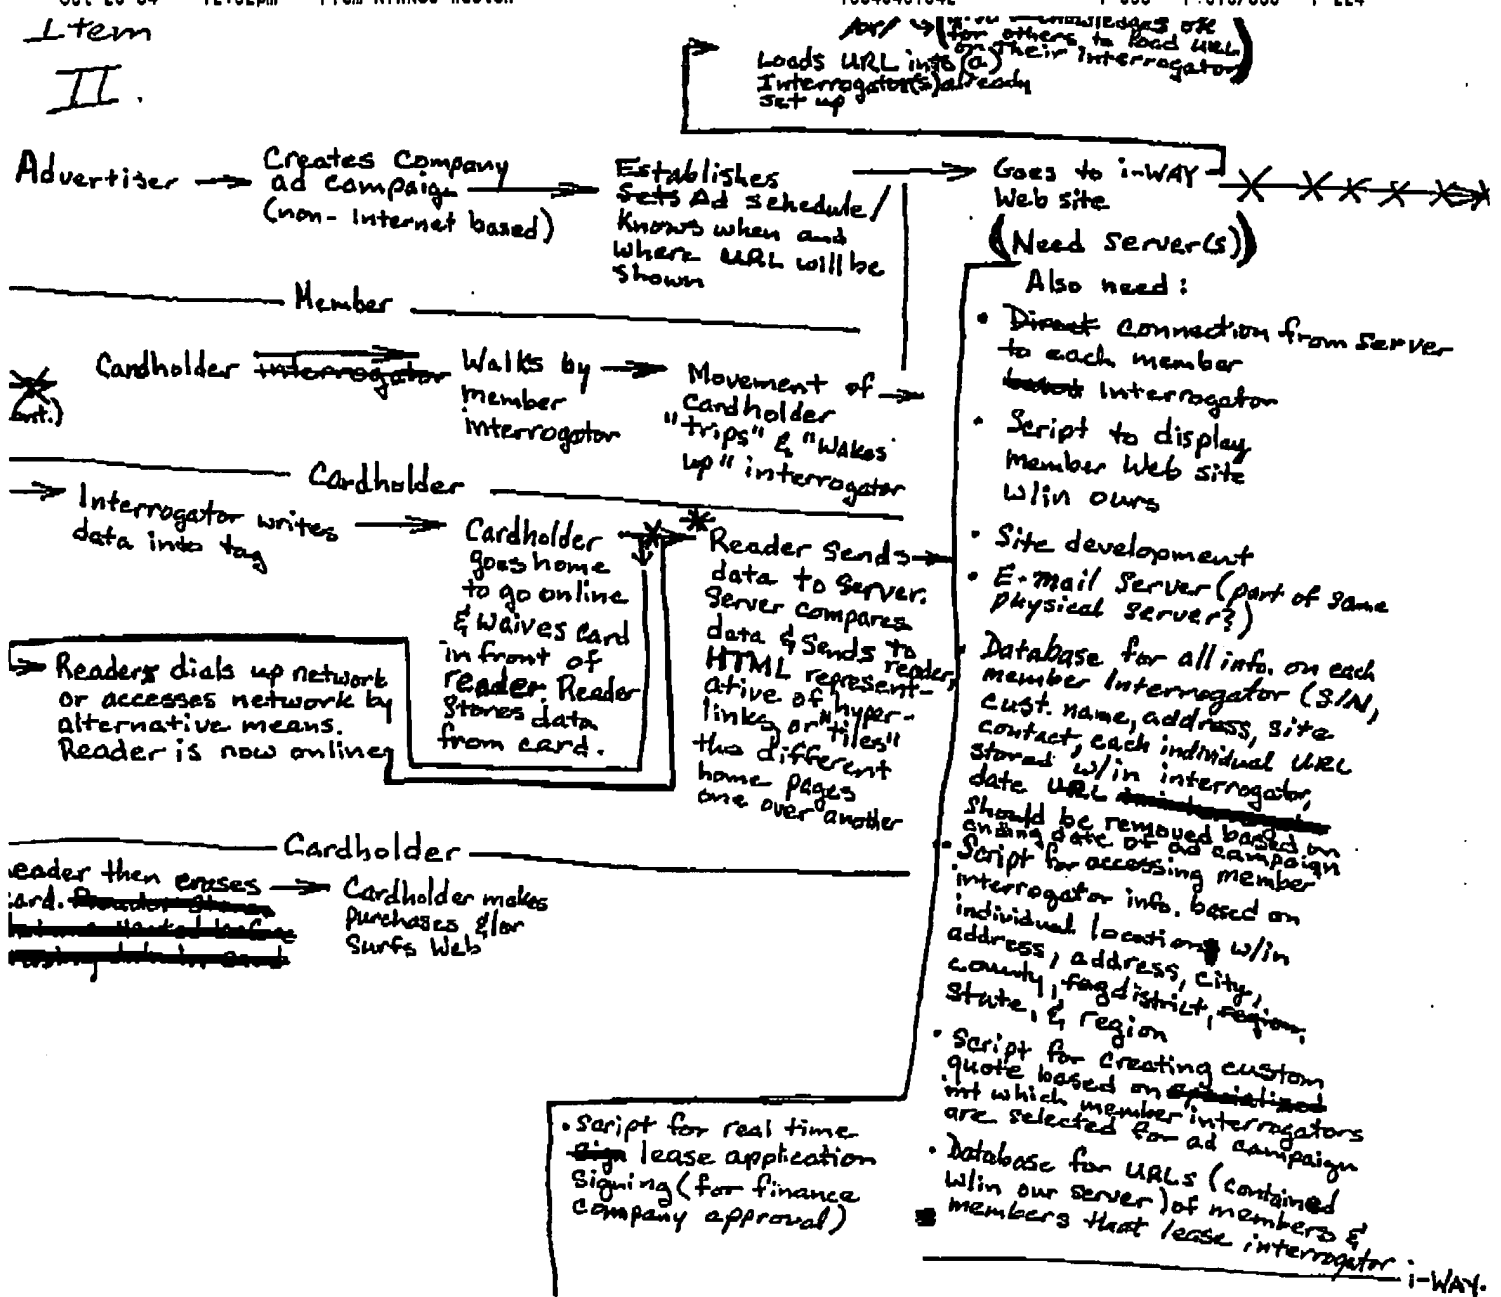 Item
II.
for others to load URL
on their interrogator
Loads URL into (a)
Interrogator(s) already
set up
Advertiser → Creates Company
ad campaign
(non-Internet based)
Establishes
Sets Ad schedule/
Knows when and
where URL will be
shown
Goes to i-WAY
Web site
(Need Server(s))
Also need:
Member
Cardholder interrogator
Walks by
member
interrogator
Movement of
Cardholder
"trips" & "wakes
up" interrogator
Cardholder
Interrogator writes
data into tag
Cardholder
goes home
to go online
& waives card
in front of
reader. Reader
stores data
from card.
Reader sends
data to server.
Server compares
data & sends to reader,
HTML represent-
ative of hyper-
links, or "tiles"
the different
home pages
one over another
Readers dials up network
or accesses network by
alternative means.
Reader is now online
Cardholder
eader then erases
ard.
Cardholder makes
purchases &/or
Surfs Web
• Direct connection from server
to each member
Interrogator
• Script to display
member Web site
w/in ours
• Site development
• E-mail Server (part of same
physical server?)
• Database for all info. on each
member Interrogator (S/N,
cust. name, address, site
contact, each individual URL
stored w/in interrogator,
date URL
should be removed based on
ending date of ad campaign
• Script for accessing member
interrogator info. based on
individual location w/in
address, address, city,
county, district, region,
state, & region
• Script for creating custom
quote based on specialized
which member interrogators
are selected for ad campaign
• Database for URLs (contained
w/in our server) of members &
members that lease interrogator
i-WAY.
• Script for real time
sign lease application
signing (for finance
company approval)